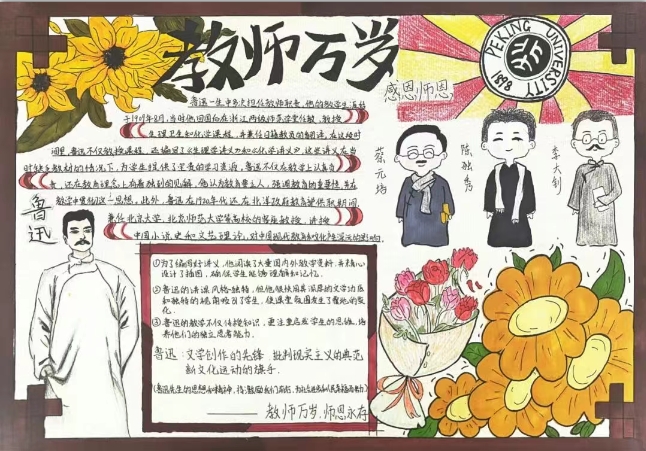 教师万岁
PEKING UNIVERSITY
1898
感恩师恩
蔡元培
陈独秀
李大钊
鲁迅
鲁迅一生中多次担任教师职务,他的教学生涯始
于1909年8月,当时他回国后在浙江两级师范学堂任教,教授
生理卫生和化学课程,并兼任日籍教员的翻译。在这段时
间里,鲁迅不仅教授课程,还编写了《生理学讲义》和《化学讲义》,这些讲义在当
时缺乏教材的情况下,为学生提供了宝贵的学习资源,鲁迅不仅在教学上认真负
责,还在教育理念上有着独到的见解,他认为教育要立人,强调教育的重要性,并在
教学中贯彻这一思想。此外,鲁迅在1920年代还在北洋政府教育部供职期间,
兼任北京大学、北京师范大学等高校的客座教授,讲授
中国小说史和文艺理论,对中国现代教育和文化产生深远的影响。
①为了编写好讲义,他阅读了大量国内外教学资料,并精心
设计了插图,确保学生能够理解和记忆。
②鲁迅的讲课风格独特,但他很快用其深厚的文学功底
和独特的视角吸引了学生,使课堂氛围发生了微妙的变
化。
③鲁迅的教学不仅传授知识,更注重启发学生的思维,培
养他们的独立思考能力。
鲁迅:文学创作的先锋 批判现实主义的典范
新文化运动的旗手。
(鲁迅先生的思想和精神,将激励我们前行,
教师万岁,师恩永存